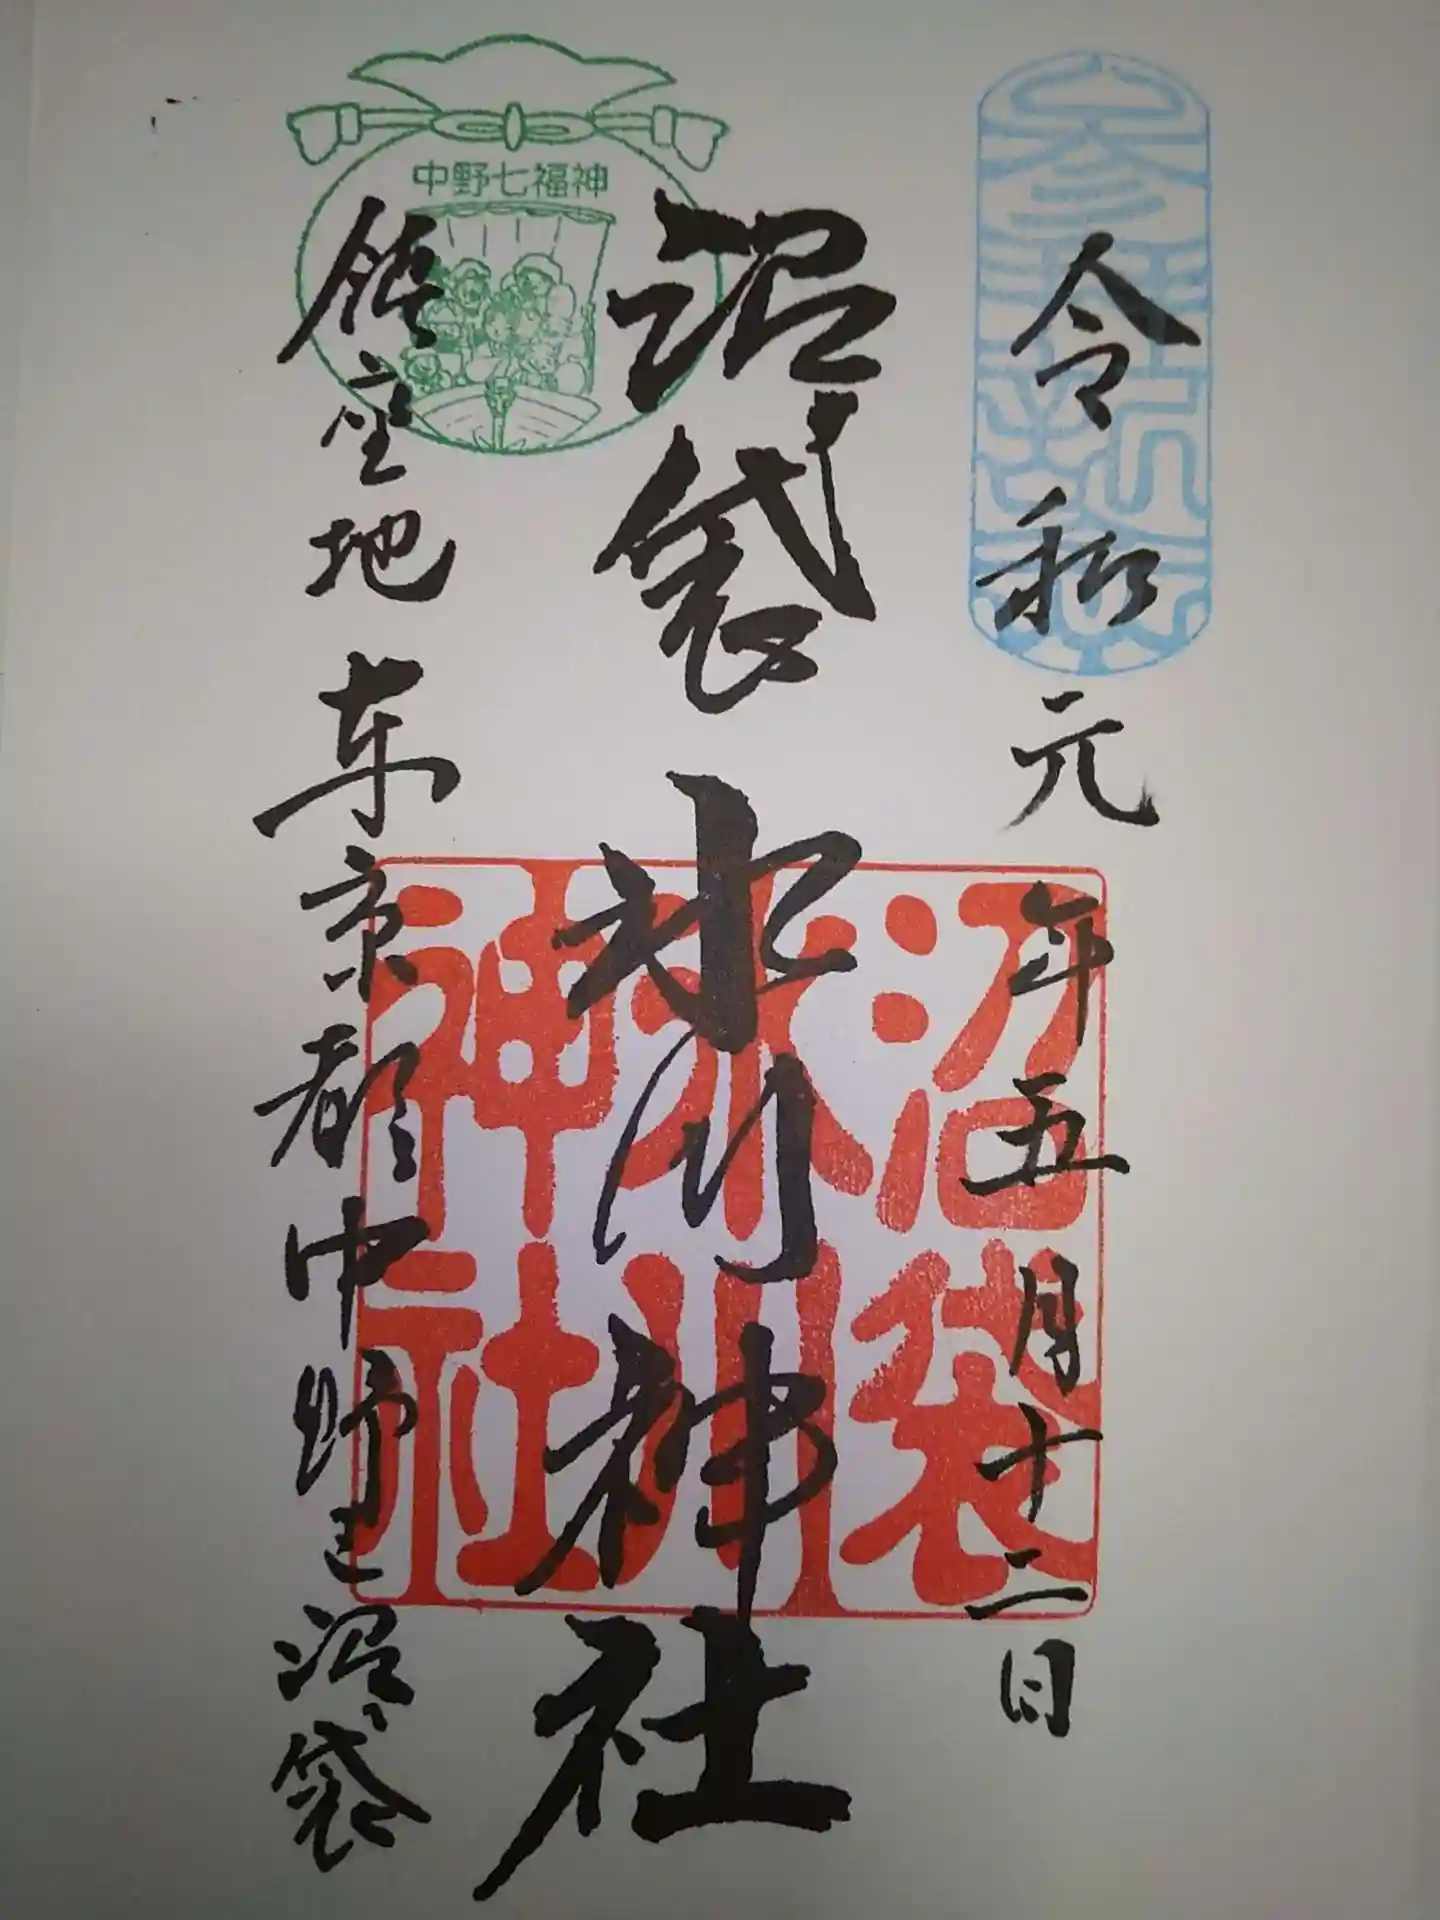 参拝記念
令和元年五月十二日
沼袋氷川神社
沼袋
氷川
神社
中野七福神
鎮座地東京都中野区沼袋